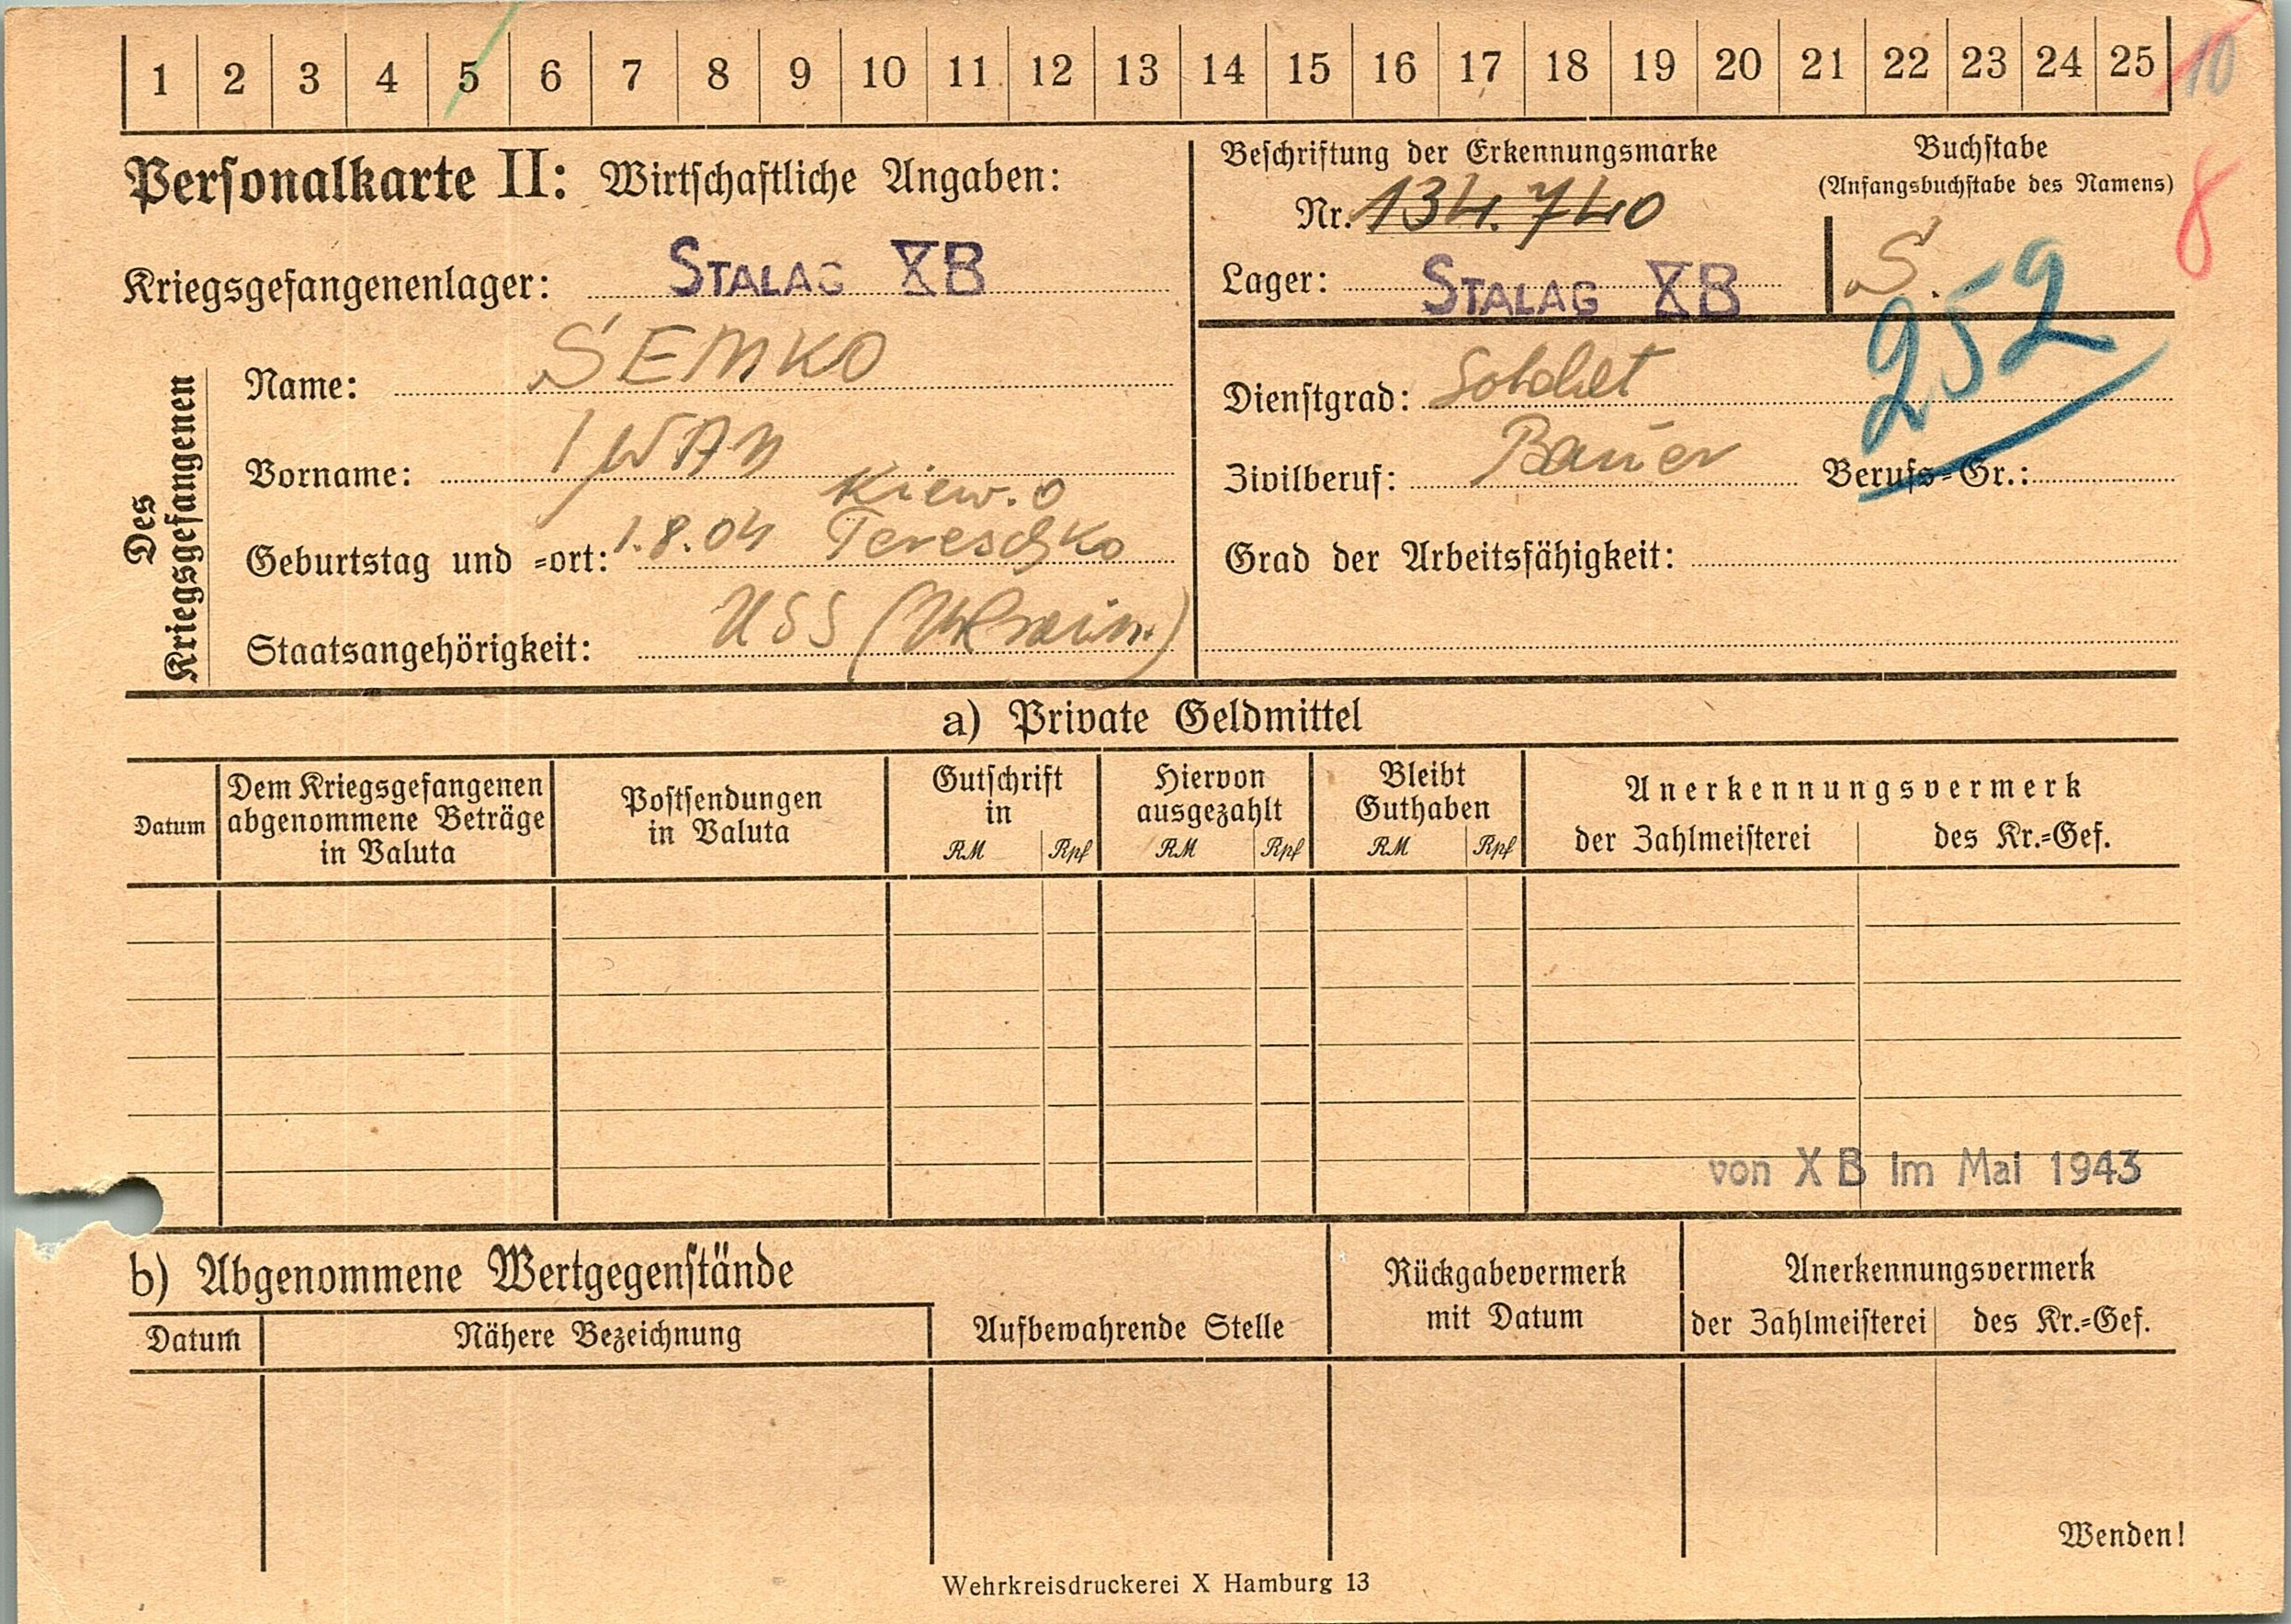 1 2 3 4 5 6 7 8 9 10 11 12 13 14 15 16 17 18 19 20 21 22 23 24 25 10
8
Personalkarte II: Wirtschaftliche Angaben:
Kriegsgefangenenlager: STALAG XB
Beschriftung der Erkennungsmarke
Nr. 134.740
Lager: STALAG XB
Buchstabe
(Anfangsbuchstabe des Namens)
S.
252
Des
Kriegsgefangenen
Name: SEMKO
Vorname: IWAN
Kiew.o
Geburtstag und =ort: 1.8.04 Tereschko
Staatsangehörigkeit: USS (Ukrain.)
Dienstgrad: Soldat
Zivilberuf: Bauer Berufs=Gr.:
Grad der Arbeitsfähigkeit:
a) Private Geldmittel
Datum
Dem Kriegsgefangenen
abgenommene Beträge
in Valuta
Postsendungen
in Valuta
Gutschrift
in
RM Rpf
Hiervon
ausgezahlt
RM Rpf
Bleibt
Guthaben
RM Rpf
Anerkennungsvermerk
der Zahlmeisterei des Kr.=Gef.
von X B im Mai 1943
b) Abgenommene Wertgegenstände
Datum Nähere Bezeichnung
Aufbewahrende Stelle
Rückgabevermerk
mit Datum
Anerkennungsvermerk
der Zahlmeisterei des Kr.=Gef.
Wenden!
Wehrkreisdruckerei X Hamburg 13